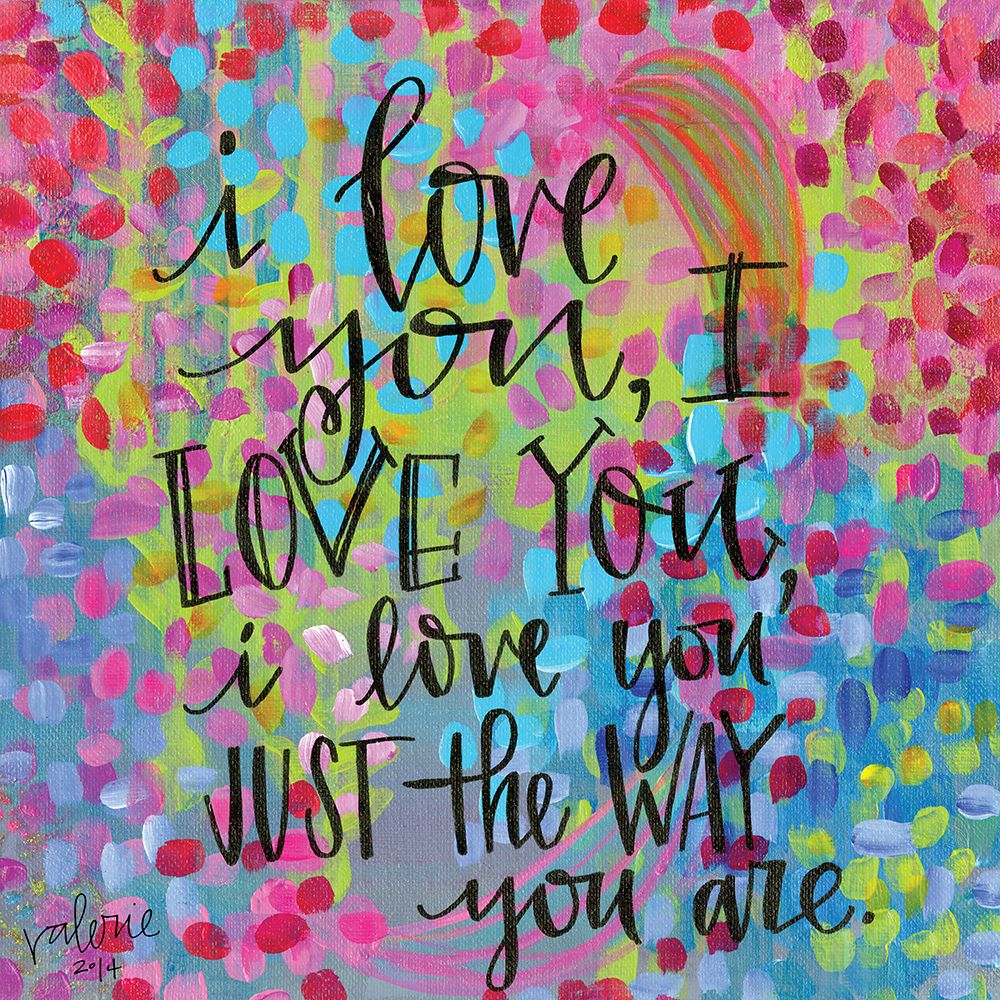 i love
you, I
LOVE YOU,
i love you
JUST the WAY
you are.
valerie
2014